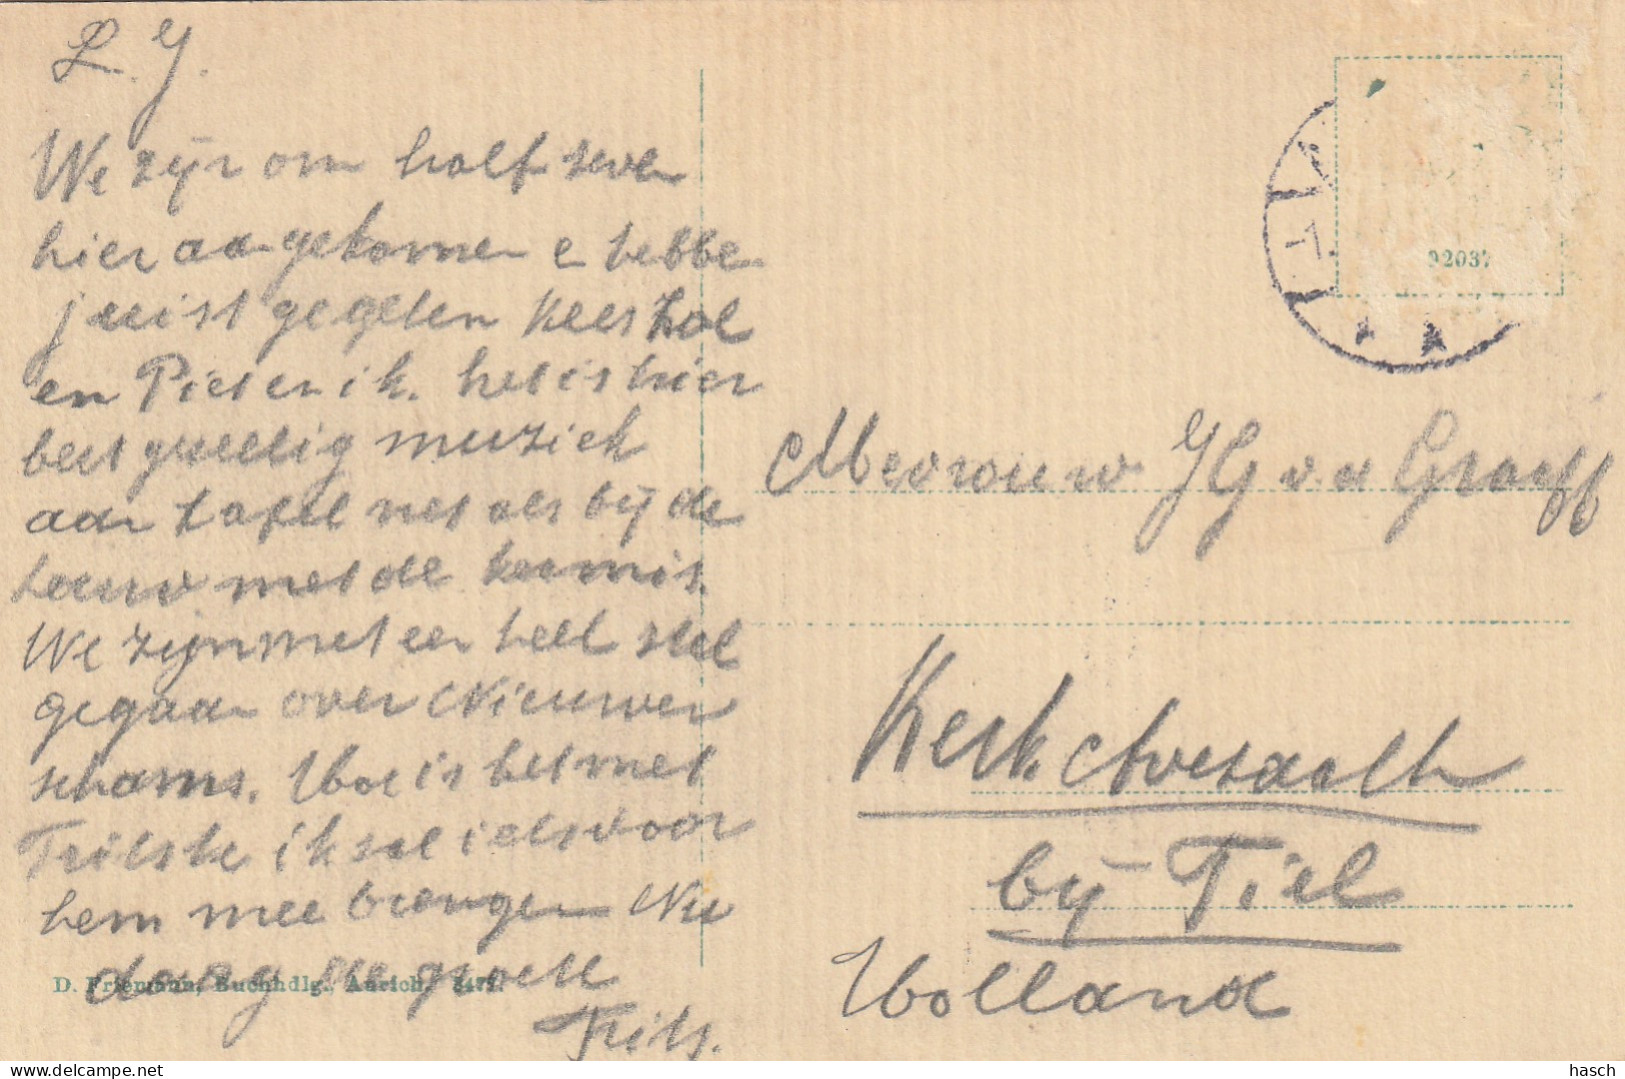 L. J.
We zijn om half seven
hier aangekomen en hebben
juist gegeten Kees Zoe
en Pieter ik. het is hier
best gezellig muziek
aan tafel net als bij de
touw met de kermis.
We zijn met een heel stel
gegaan over Nieuwen
schams. Hoe is het met
Fritske ik sal iets voor
hem mee brengen Nu
daag de groete
Frits.
D. Friemann, Buchhdlg., Aurich.
92037
Mevrouw JG v.d Graaff
Kerk Avezaath
bij Tiel
Holland
hasch